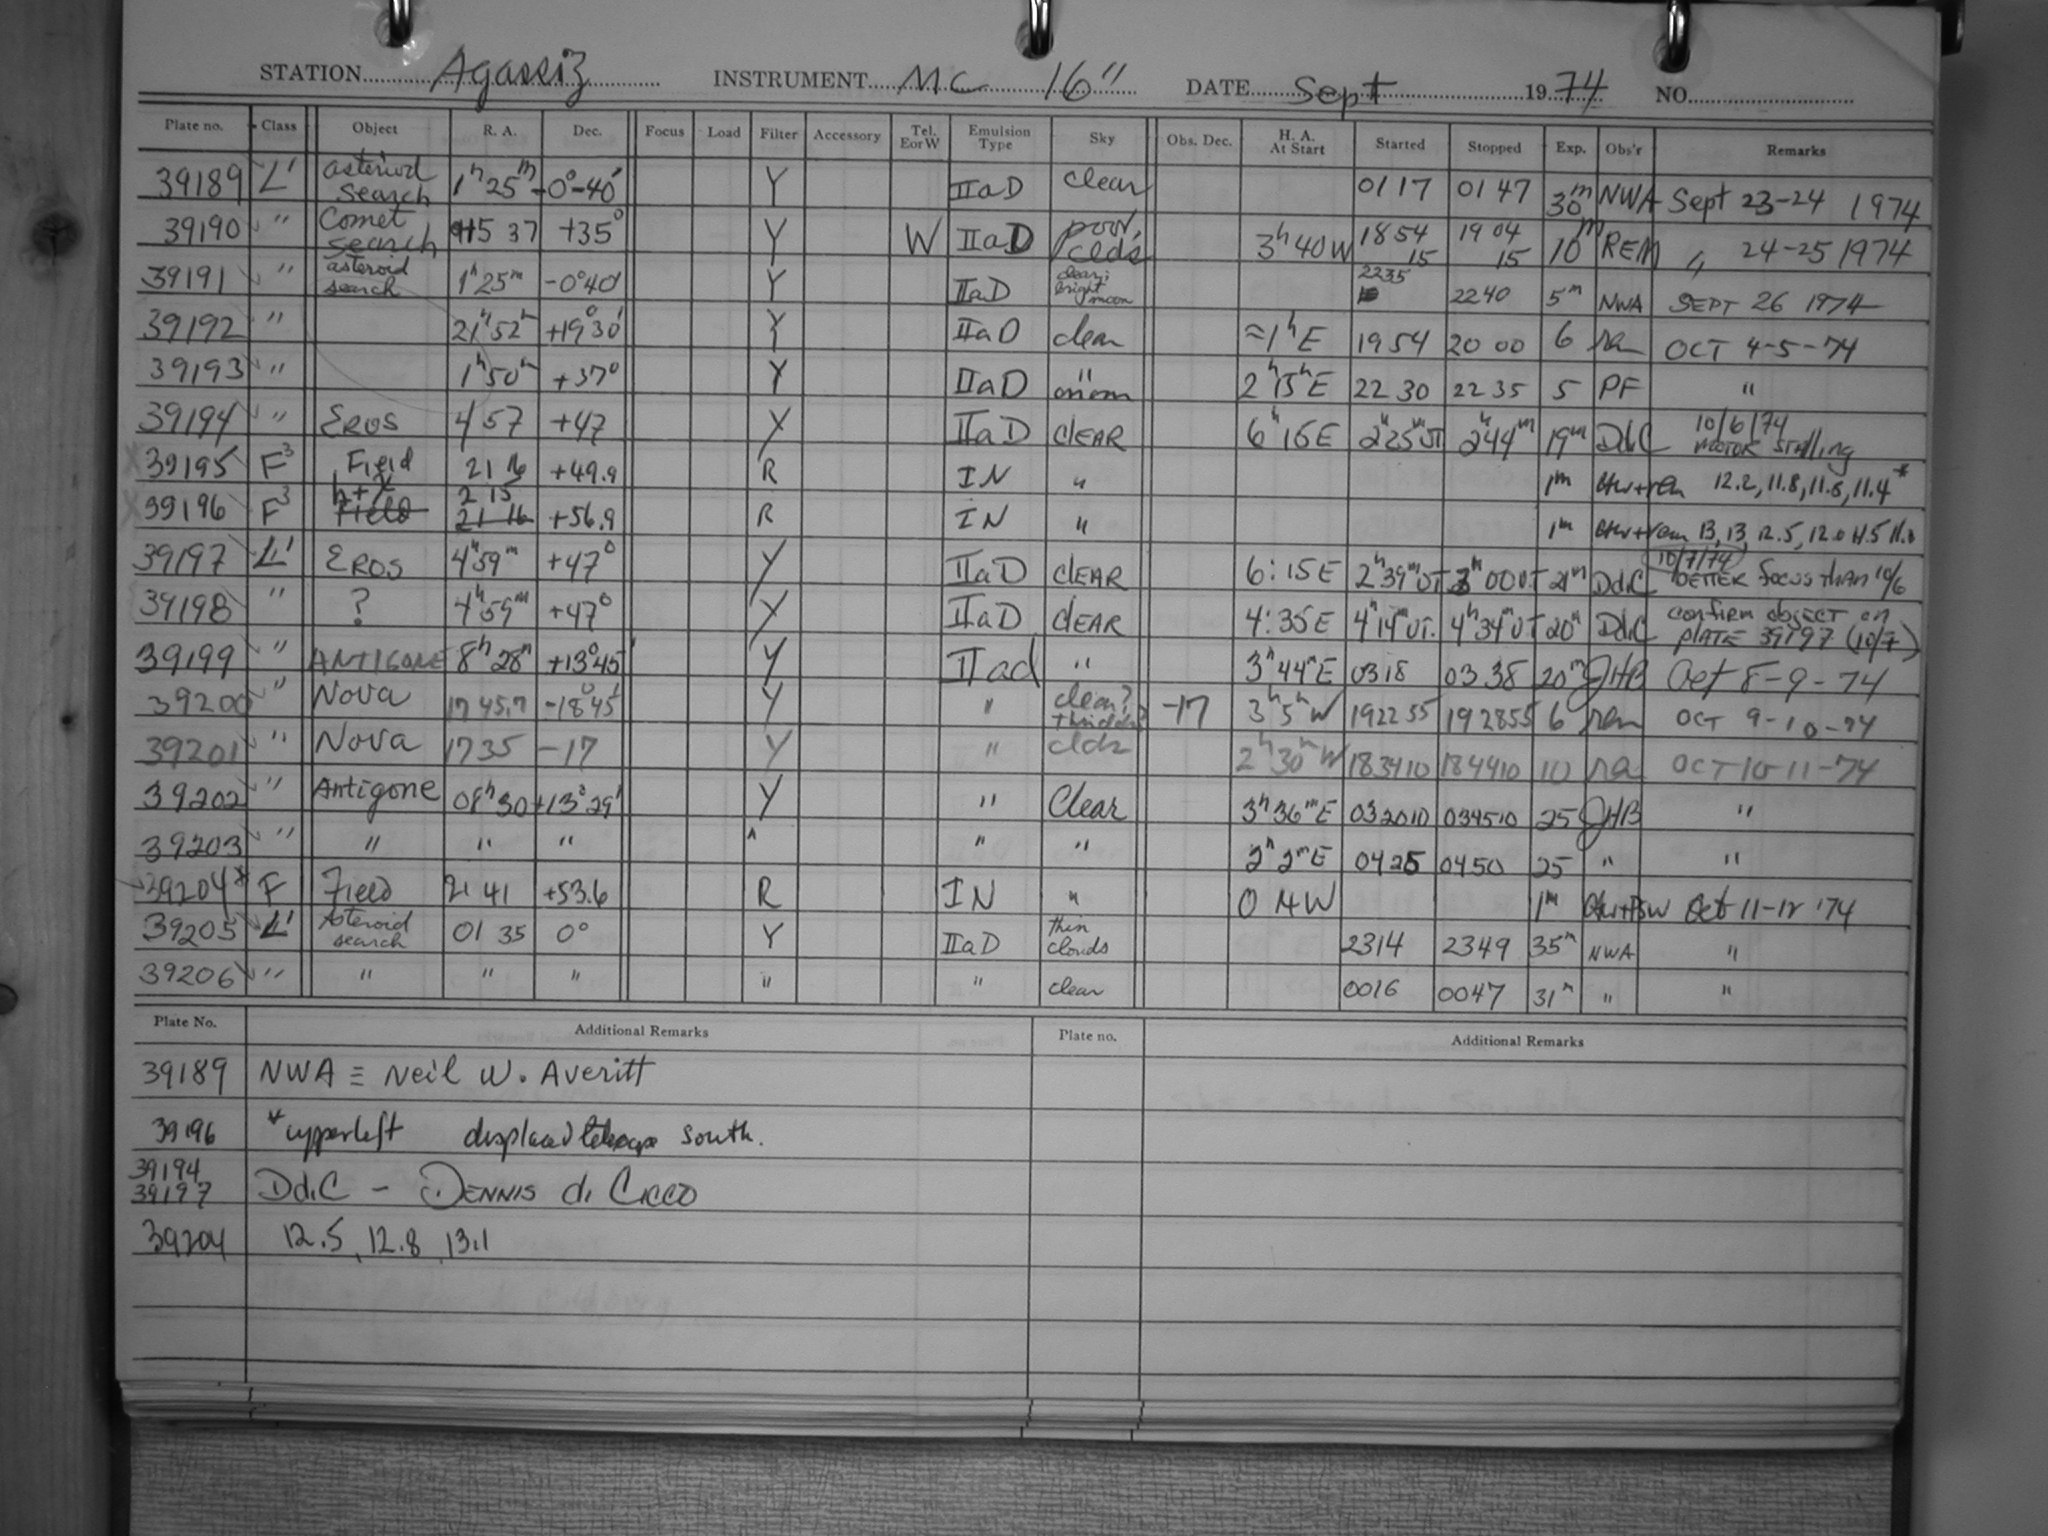 STATION Agassiz INSTRUMENT MC 16" DATE Sept 1974 NO.
Plate no. Class Object R. A. Dec. Focus Load Filter Accessory Tel. E or W Emulsion Type Sky Obs. Dec. H. A. At Start Started Stopped Exp. Obs'r Remarks
39189 L' asteriod search 1h 25m -0°-40' Y IIaD clear 0117 0147 30m NWA Sept 23-24 1974
39190 " Comet search 15 37 +35° Y W IIaD poor, clds 3h 40W 1854 15 1904 15 10m REM " 24-25 1974
39191 " asteroid search 1h25m -0°40' Y IIaD clear; bright moon 2235 2240 5m NWA SEPT 26 1974
39192 " 21h 52m +19°30' Y IIaD clear ≈1h E 1954 20 00 6 OCT 4-5-74
39193 " 1h 50m +37° Y IIaD " 2h 15m E 22 30 22 35 5 PF "
39194 " EROS 4 57 +47 Y IIaD CLEAR 6h 16E 2h25m UT 2h44m 19m DdiC 10/6/74 MOTOR STALLING
39195 F3 Field 21 16 +49.9 R IN " 1m 12.2, 11.8, 11.6, 11.4*
39196 F3 h+χ Field 2 15 21 16 +56.9 R IN " 1m 13, 13, 12.5, 12.0 11.5
39197 L' EROS 4h59m +47° Y IIaD CLEAR 6:15E 2h39m UT 3h 00 UT 21m DdiC 10/7/74 BETTER focus than 10/6
39198 " ? 4h59m +47° Y IIaD CLEAR 4:35E 4h14m UT. 4h34m UT 20m DdiC confirm object on PLATE 39197 (10/7)
39199 " ANTIGONE 8h 28m +13°45' Y IIad " 3h44m E 0318 0338 20m JHB Oct 8-9-74
39200 " Nova 17 45.7 -18°45' Y " clear? -17 3h 5m W 192255 192855 6 rem OCT 9-10-74
39201 " Nova 17 35 -17 Y " clds 2h 30m W 183410 184410 10 OCT 10-11-74
39202 " Antigone 08h 30 +13°29' Y " Clear 3h 36m E 032010 034510 25 JHB "
39203 " " " " " " " 2h 2m E 0425 0450 25 " "
39204* F Field 21 41 +53.6 R IN " 0 14W 1m Oct 11-12 '74
39205 L' Asteroid search 01 35 0° Y IIaD thin clouds 2314 2349 35m NWA "
39206 " " " " " " clear 0016 0047 31m " "
Plate No. Additional Remarks Plate no. Additional Remarks
39189 NWA ≡ Neil W. Averitt
39196 *upper left displaced telescope south.
39194
39197 DdiC - DENNIS di CICCO
39204 12.5, 12.8, 13.1